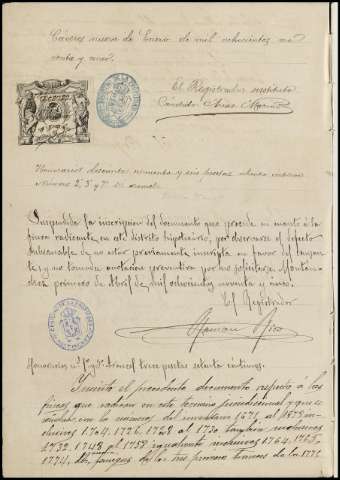 Cáceres nueve de Enero de mil ochocientos no
venta y nueve.
El Registrador sustituto
Honorarios doscientas noventa y seis pesetas
Números 2, 3 y 7 del arancel
Suspendida la inscripcion del documento que precede en cuanto á la
finca radicante en este distrito hipotecario, por observarse el defecto
subsanable de no estar previamente inscripta en favor del causan
te, y no tomada anotacion preventiva por no solicitarse. Montan
chez primero de Abril de mil ochocientos noventa y nueve.
El Registrador
Ramon Rico
Honorarios nº 1º del Arancel tres pesetas setenta centimos.
Inscrito el precedente documento respecto á las
fincas que radican en este termino jurisdiccional y que se
señalan con los números del inventario 1671 al 1673 in-
clusives 1704, 1726, 1728 al 1730 tambien inclusives
1732, 1748 al 1758 igualmente inclusives 1764, 1765,
1774, de los tres primeros